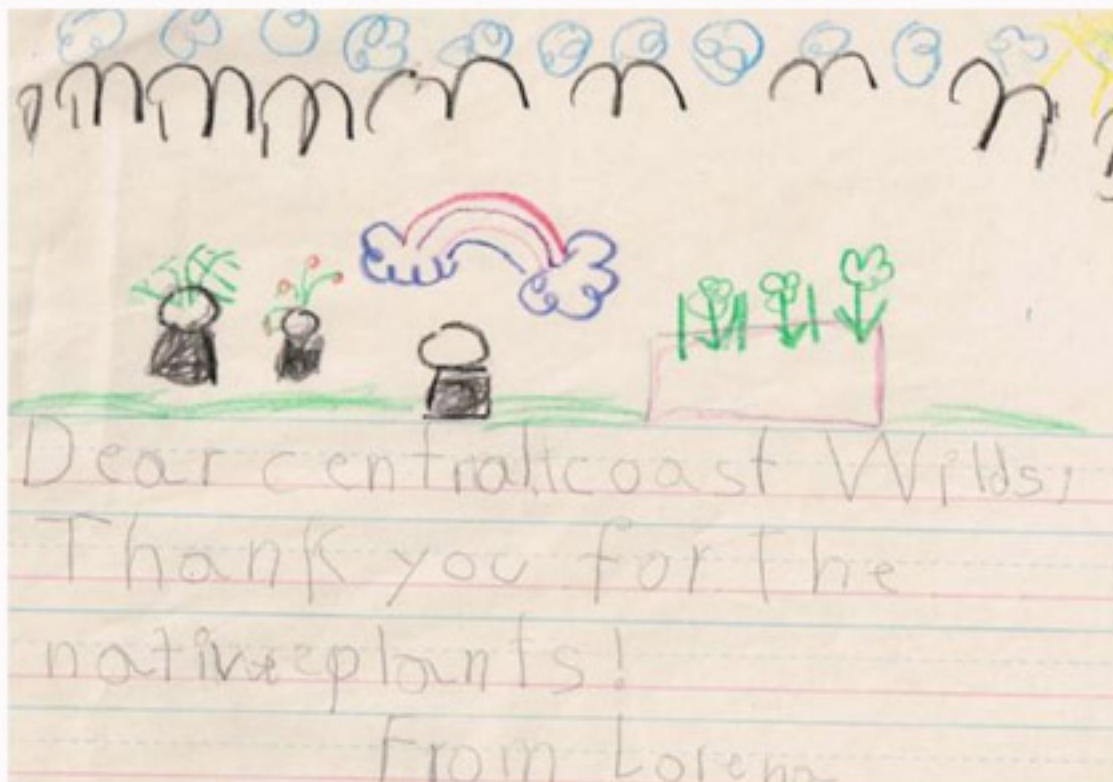 Dear central coast Wilds,
Thank you for the
native plants!
From Lorena